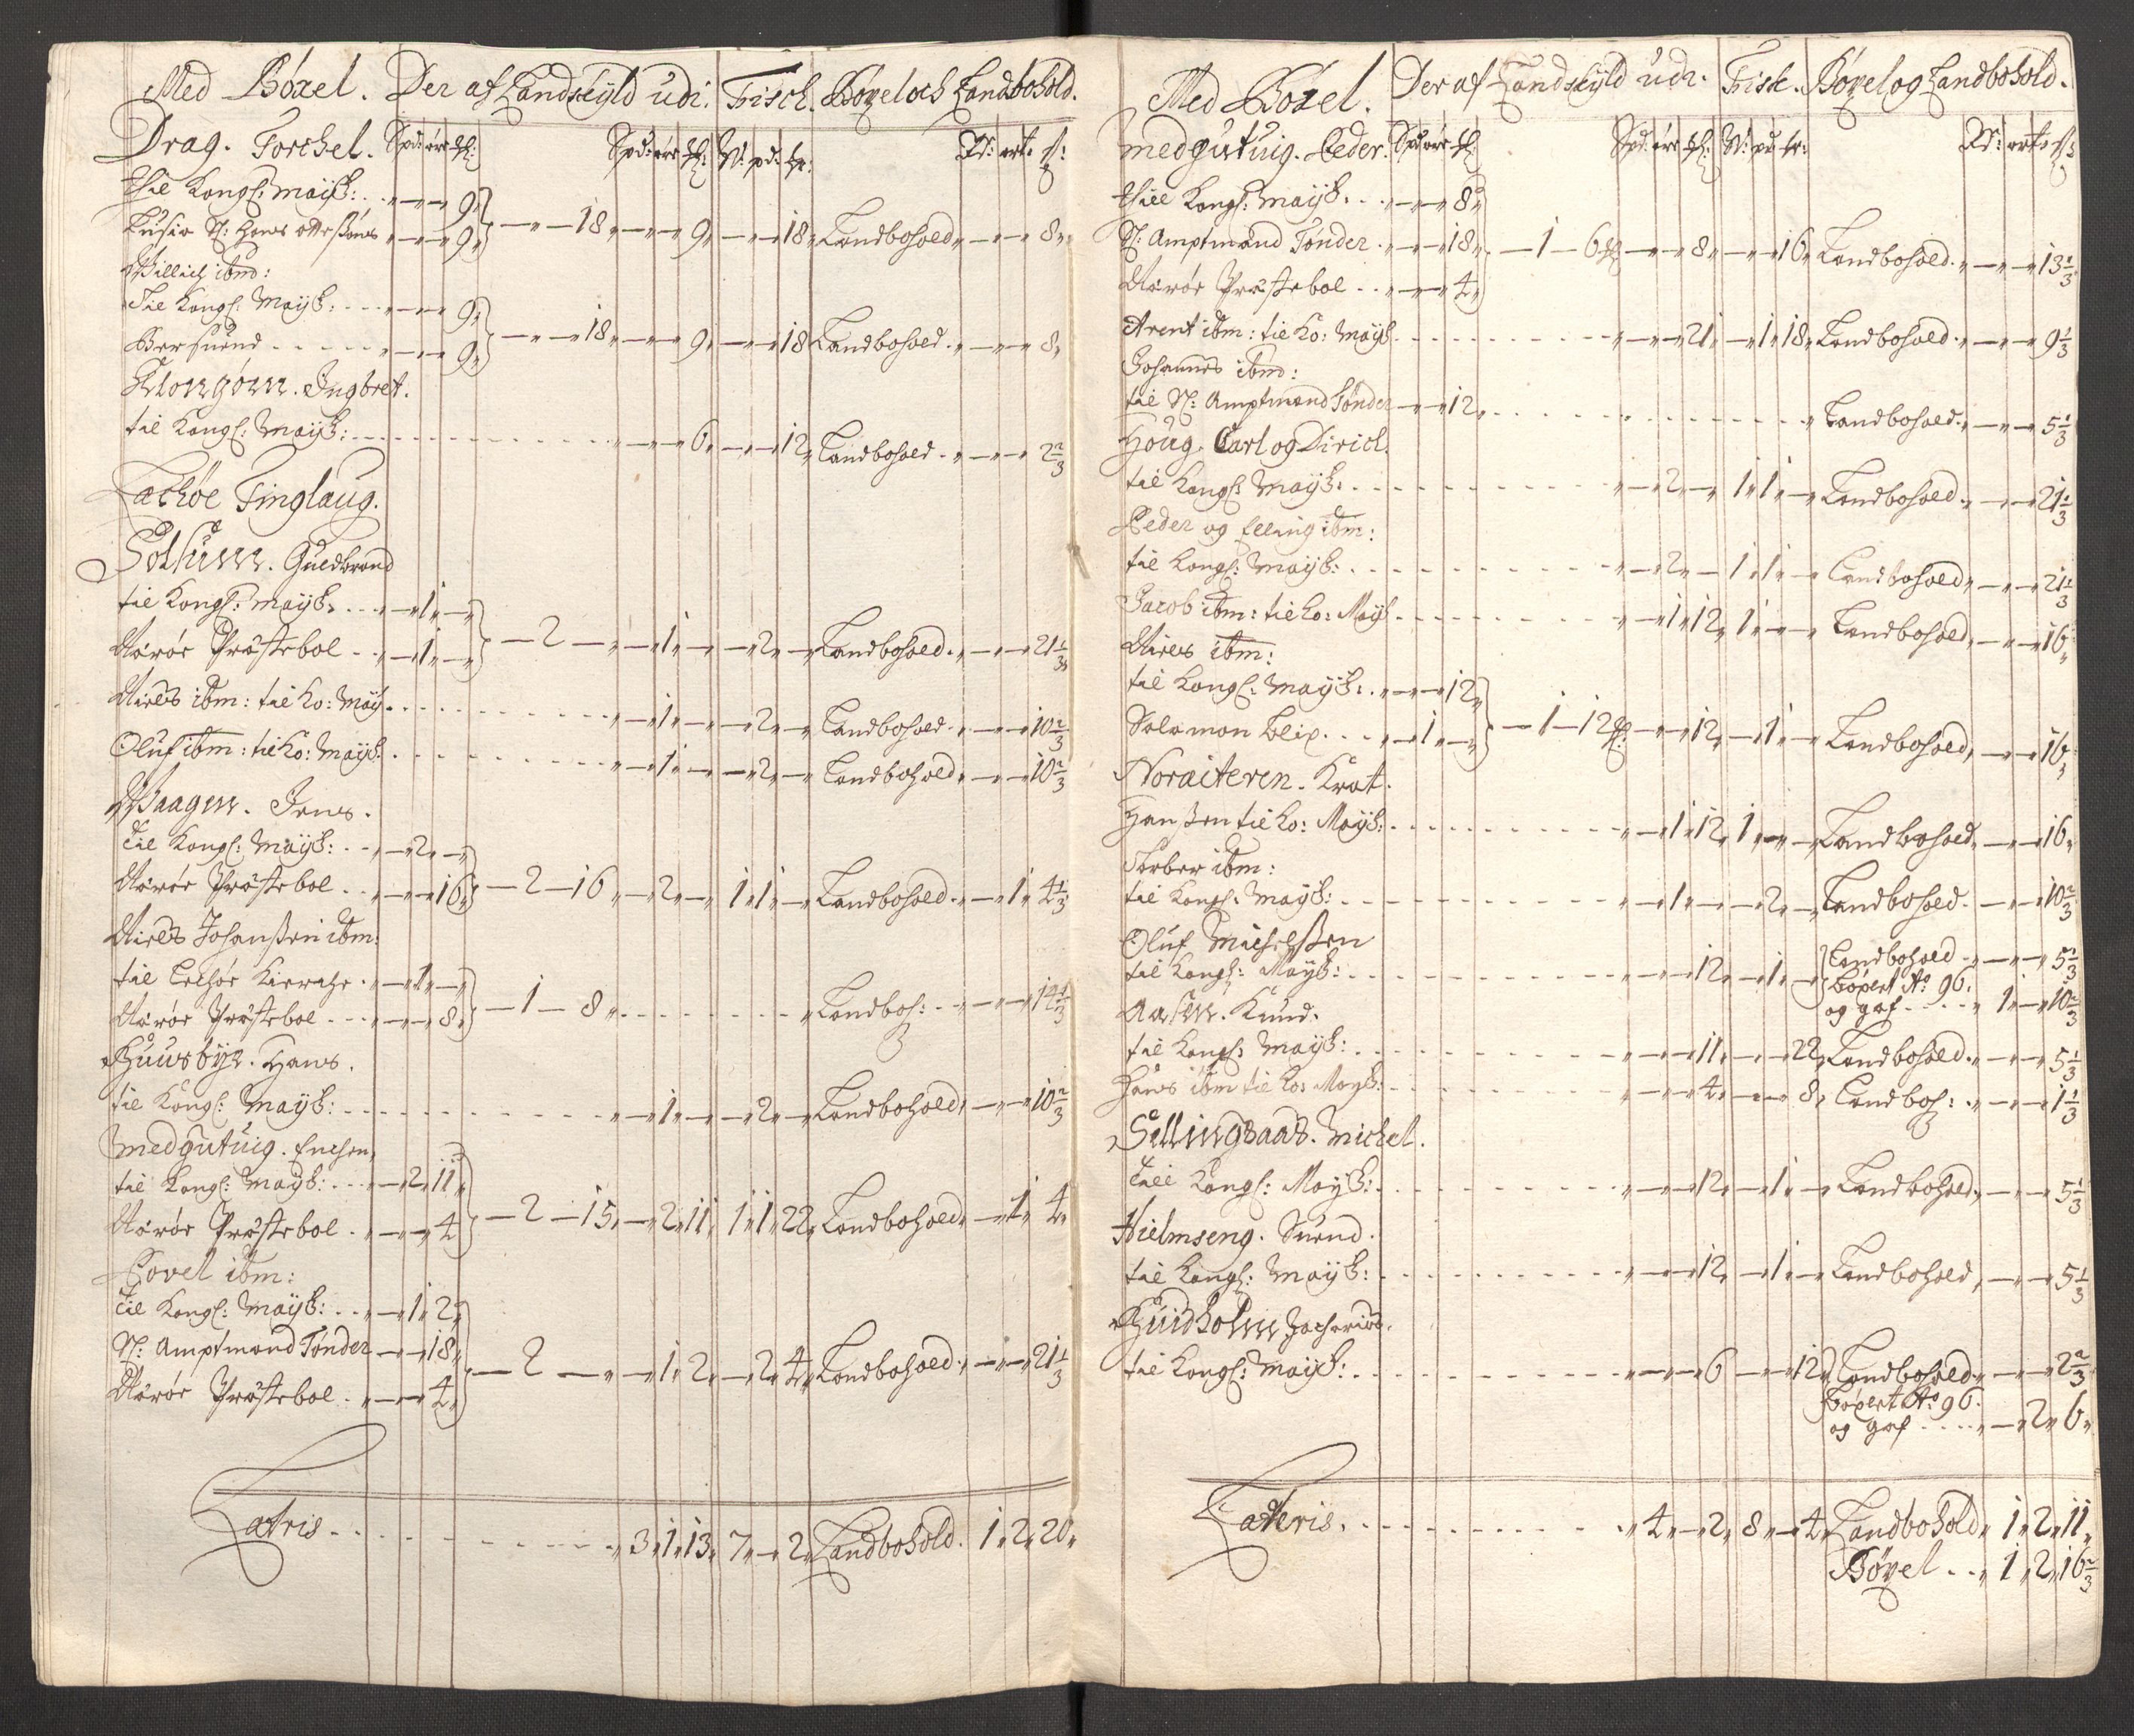 Med Böxel. Der af Landskyld udi. Fisch. Böxel och Landbohold.
Drag. Torchel. Spd: öre ... Spd: öre ... W: pd: ... Rd: ort: s:
till Kongl: Mayst: - - - 9
... H: Hans Ottesøns - - - 9 - - 18 - - 9 - - 18 Landbohold - - 8
Willich ibm:
Til Kongl: Mayst: - - - 9
Bersuend - - - 9 - - 18 - - 9 - - 18 Landbohold - - 8
Klongörn. Ingbret.
til Kongl: Mayst: - - 6 - - 12 Landbohold - - 2 2/3
Lechöe Tinglaug.
Solhiem. Guedbrand
til Kongl: Mayst: - 1 -
Nærøe Præstebol - 1 - - 2 - - 1 - - 2 - Landbohold - - 21 1/3
Niels ibm: til Ko: May - 1 - - 2 - Landbohold - - 10 2/3
Oluf ibm: til Ko: Mayst - 1 - - 2 - Landbohold - - 10 2/3
Waagen. Jens.
Til Kongl: Mayst: - 2 -
Nærøe Præstebol - - 16 - 2 - 16 - 2 - 1 1 - Landbohold - 1 4 1/3
Niels Johanssen ibm:
til Lechöe Kierche - 1 -
Nærøe Præstebol - - 8 - 1 - 8 Landboh: - - 14 1/3
Huusbye. Hans.
til Kongl: Mayst: - 1 - - 2 - Landbohold - - 10 2/3
Medgutuig. Enchen
til Kongl: Mayst: - 2 11
Nærøe Præstebol - - 4 - 2 - 15 - 2 11 1 1 22 Landbohold - 1 4
Povel ibm:
Til Kongl: Mayst: - 1 2
H: Amptmand Tønder - - 18
Nærøe Præstebol - - 4 - 2 - - 1 2 - 2 4 Landbohold - - 21 1/3
Latris - - - 3 1 13 7 - 2 Landbohold 1 2 20
Med Böxel. Der af Landskyld udi. Fisk. Böxel og Landbohold.
Medgutuig. Peder. Spd: öre ... Spd: öre ... W: pd: ... Rd: ort: s:
till Kongl: Mayst: - - - 8
H: Amptmand Tønder - - 18 - 1 - 6 - - 8 - - 16 Landbohold - - 13 1/3
Nærøe Præstebol - - - 4
Arent ibm: til Ko: Mayst - - 21 - 1 18 Landbohold - - 9 1/3
Johannes ibm:
til H: Amptmand Tønder - - 12 Landbohold - - 5 1/3
Houg. Carl og Dirich
til Kongl: Mayst: - 2 - 1 1 - Landbohold - - 21 1/3
Peder og Elling ibm:
til Kongl: Mayst: - 2 - 1 1 - Landbohold - - 21 1/3
Jacob ibm: til Ko: Mayst - 1 12 1 - - Landbohold - - 16
Niels ibm:
til Kongl: Mayst: - - 12
Salamon Blix - 1 - - 1 - 12 - - 12 - 1 - Landbohold - - 16
Noraiteren. Knut.
Hanssen til Ko: Mayst: - 1 12 1 - - Landbohold - - 16
Torber ibm:
til Kongl: Mayst: - 1 - - 2 - Landbohold - - 10 2/3
Oluf Michelssen
til Kongl: Mayst: - - 12 - 1 - Landbohold - - 5 1/3
Böxelt Ao 96.
og gaf - - 1 - 10 2/3
Aashm. Knud.
til Kongl: Mayst: - - 11 - - 22 Landbohold - - 5 1/3
Hans ibm til Ko: Mayst: - - 4 - - 8 Landboh: - - 1 1/3
Sellingsaas. Michel.
till Kongl: Mayst: - - 12 - 1 - Landbohold - - 5 1/3
Hielmseng. Suend.
til Kongl: Mayst: - - 12 - 1 - Landbohold - - 5 1/3
Huidholm Zacharias.
til Kongl: Mayst: - - 6 - - 12 Landbohold - - 2 2/3
Böxelt Ao 96.
og gaf - - - 2 6
Lateris. - - - 4 - 2 8 - 4 Landbohold 1 2 11
Böxel - - 1 2 16 2/3